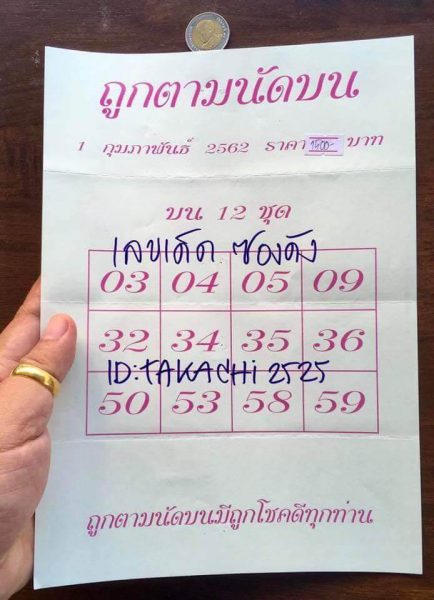 ถูกตามนัดบน
1 กุมภาพันธ์ 2562 ราคา 1500- บาท
บน 12 ชุด
เลขเด็ด ซองดัง
03 04 05 09
32 34 35 36
ID:TAKACHi 2525
50 53 58 59
ถูกตามนัดบนมีถูกโชคดีทุกท่าน